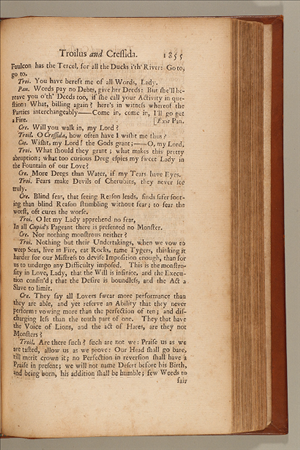 Troilus and Cressida. 1855
Faulcon has the Tercel, for all the Ducks i'th' River: Go to,
go to.
Troi. You have bereft me of all Words, Lady.
Pan. Words pay no Debts, give her Deeds: But she'll be-
reave you o'th' Deeds too, if she call your Activity in que-
stion: What, billing again? here's in witness whereof the
Parties interchangeably——Come in, come in, I'll go get
a Fire. [Exit Pan.
Cre. Will you walk in, my Lord?
Troil. O Cressida, how often have I wisht me thus?
Cre. Wisht, my Lord! the Gods grant;——O, my Lord.
Troi. What should they grant; what makes this pretty
abruption; what too curious Dreg espies my sweet Lady in
the Fountain of our Love?
Cre. More Dregs than Water, if my Tears have Eyes.
Troi. Fears make Devils of Cherubins, they never see
truly.
Cre. Blind fear, that seeing Reason leads, finds safer foot-
ing than blind Reason stumbling without fear; to fear the
worst, oft cures the worse.
Troi. O let my Lady apprehend no fear,
In all Cupid's Pageant there is presented no Monster.
Cre. Nor nothing monstrous neither?
Troil. Nothing but their Undertakings, when we vow to
weep Seas, live in Fire, eat Rocks, tame Tygers, thinking it
harder for our Mistress to devise Imposition enough, than for
us to undergo any Difficulty imposed. This is the monstro-
sity in Love, Lady, that the Will is infinite, and the Execu-
tion confin'd; that the Desire is boundless, and the Act a
Slave to limit.
Cre. They say all Lovers swear more performance than
they are able, and yet reserve an Ability that they never
perform: vowing more than the perfection of ten; and dis-
charging less than the tenth part of one. They that have
the Voice of Lions, and the act of Hares, are they not
Monsters?
Troil. Are there such? such are not we: Praise us as we
are tasted, allow us as we prove: Our Head shall go bare,
till merit crown it; no Perfection in reversion shall have a
Praise in present; we will not name Desert before his Birth,
and being born, his addition shall be humble; few Words to
fair